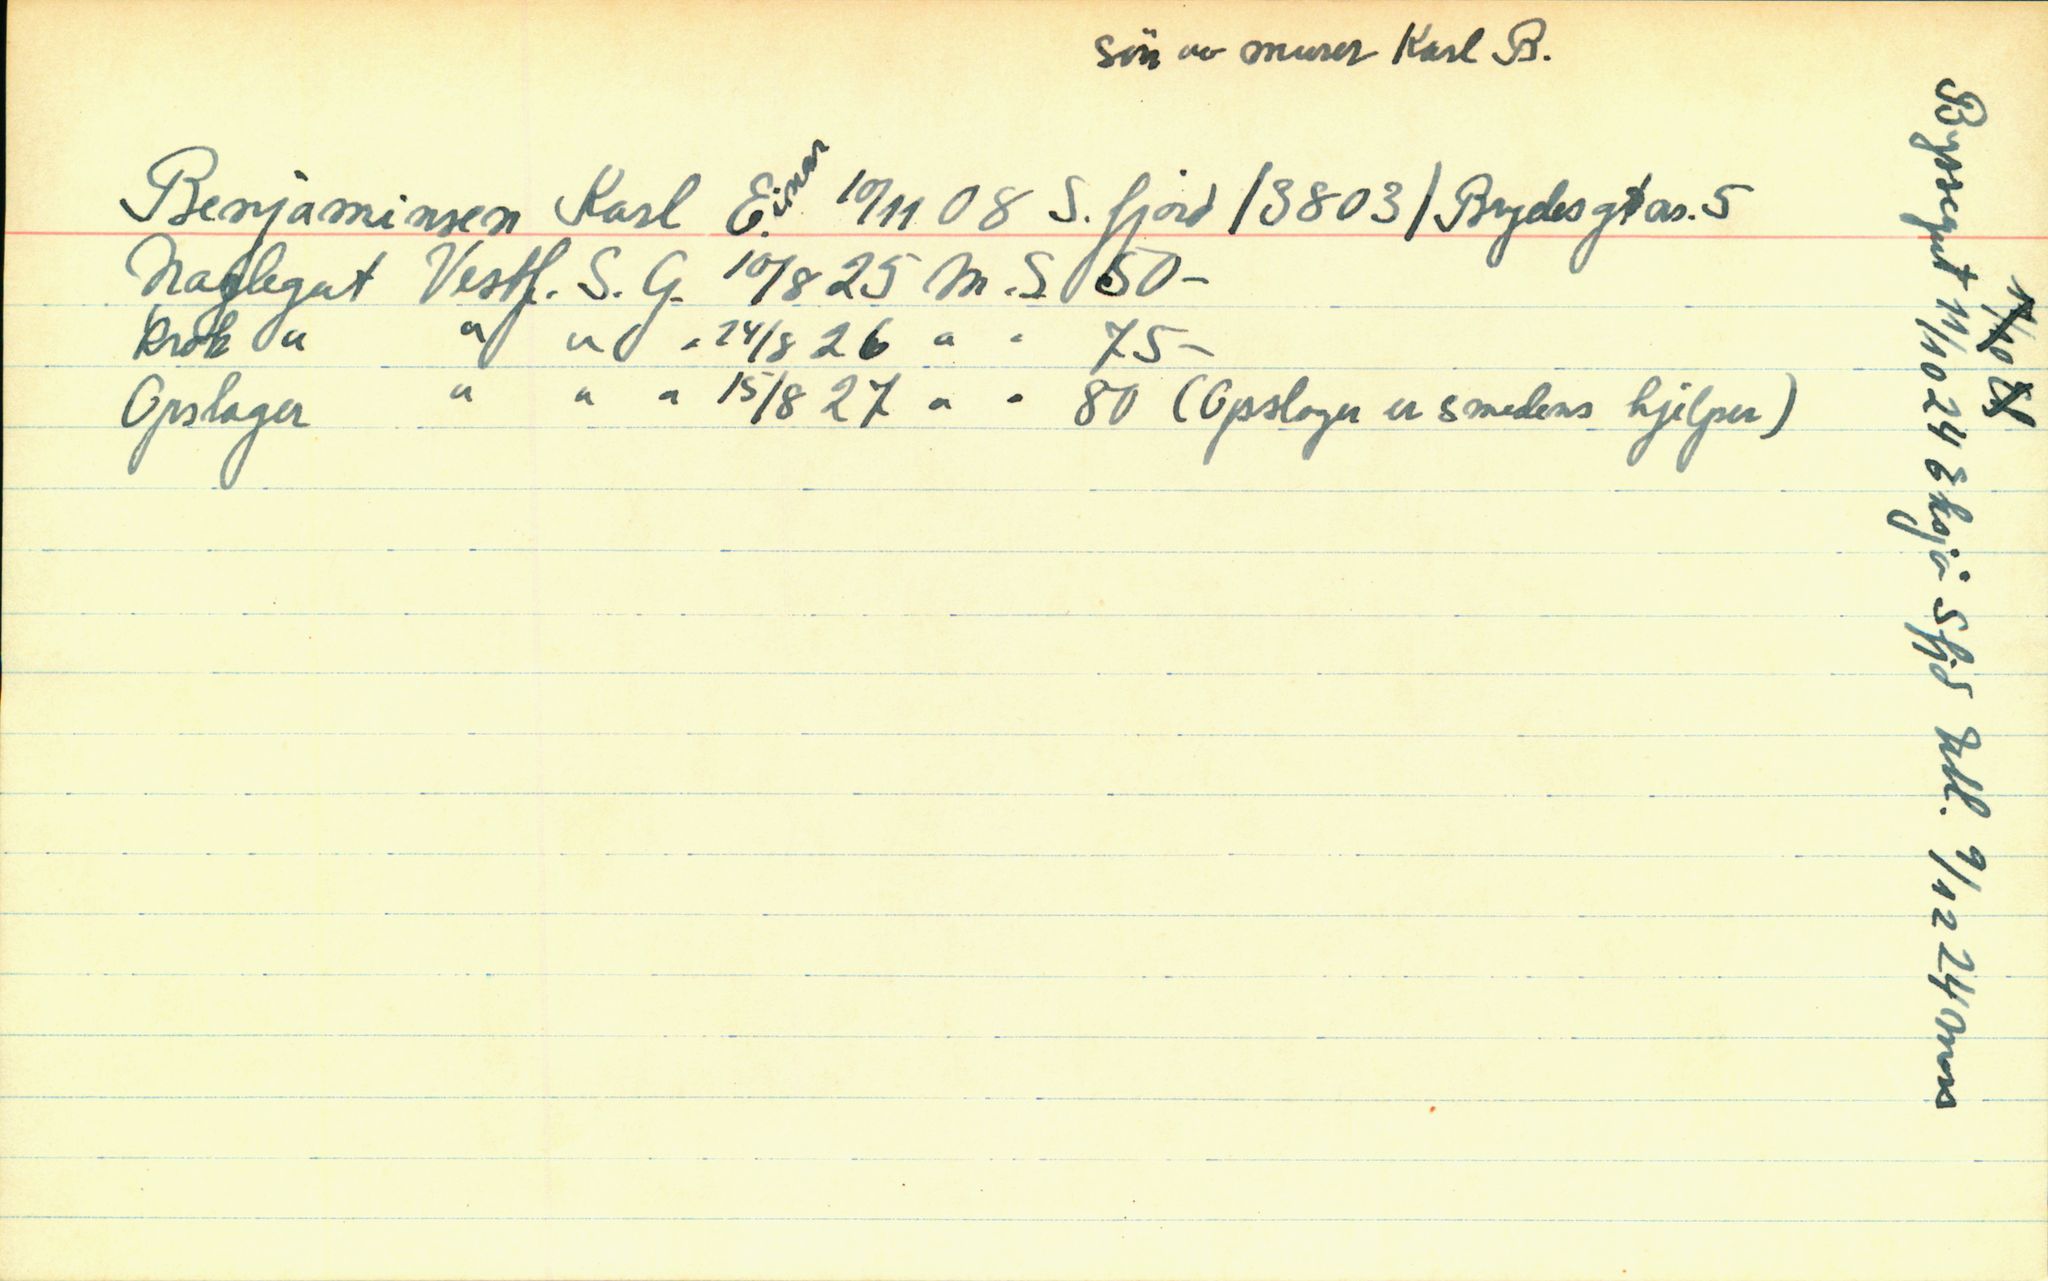 søn av murer Karl B.
Benjaminsen Karl E. Einar 10/11 08 S. fjord /3803/ Brydesgt as. 5
Naglegut Vestf. S. G. 10/8 25 M.S 50-
Krok " " " " 24/8 26 " " 75-
Opslager " " " 15/8 27 " " 80 (Opslager er smedens hjelper)
1/10 24
Byssegut 11/10 24 Eksjø Sfjd 9/12 24